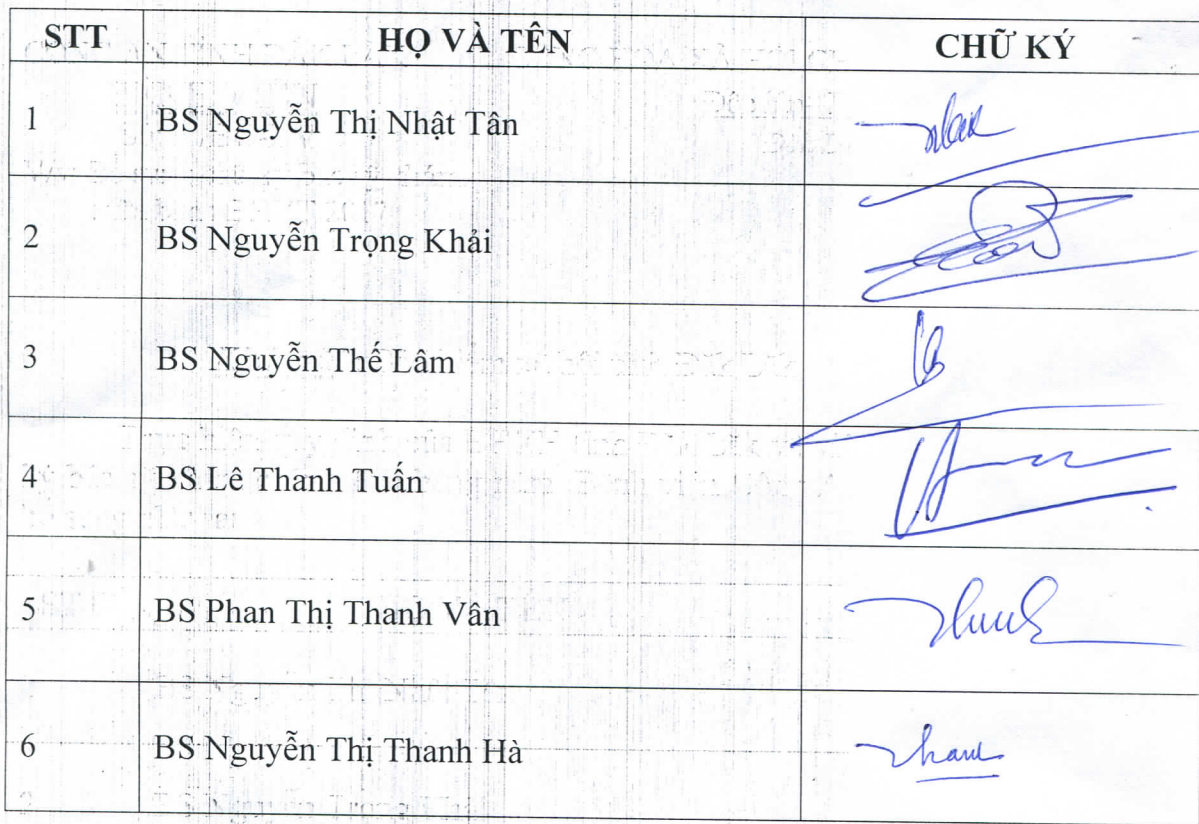 STT HỌ VÀ TÊN CHỮ KÝ
1 BS Nguyễn Thị Nhật Tân
2 BS Nguyễn Trọng Khải
3 BS Nguyễn Thế Lâm
4 BS Lê Thanh Tuấn
5 BS Phan Thị Thanh Vân
6 BS Nguyễn Thị Thanh Hà